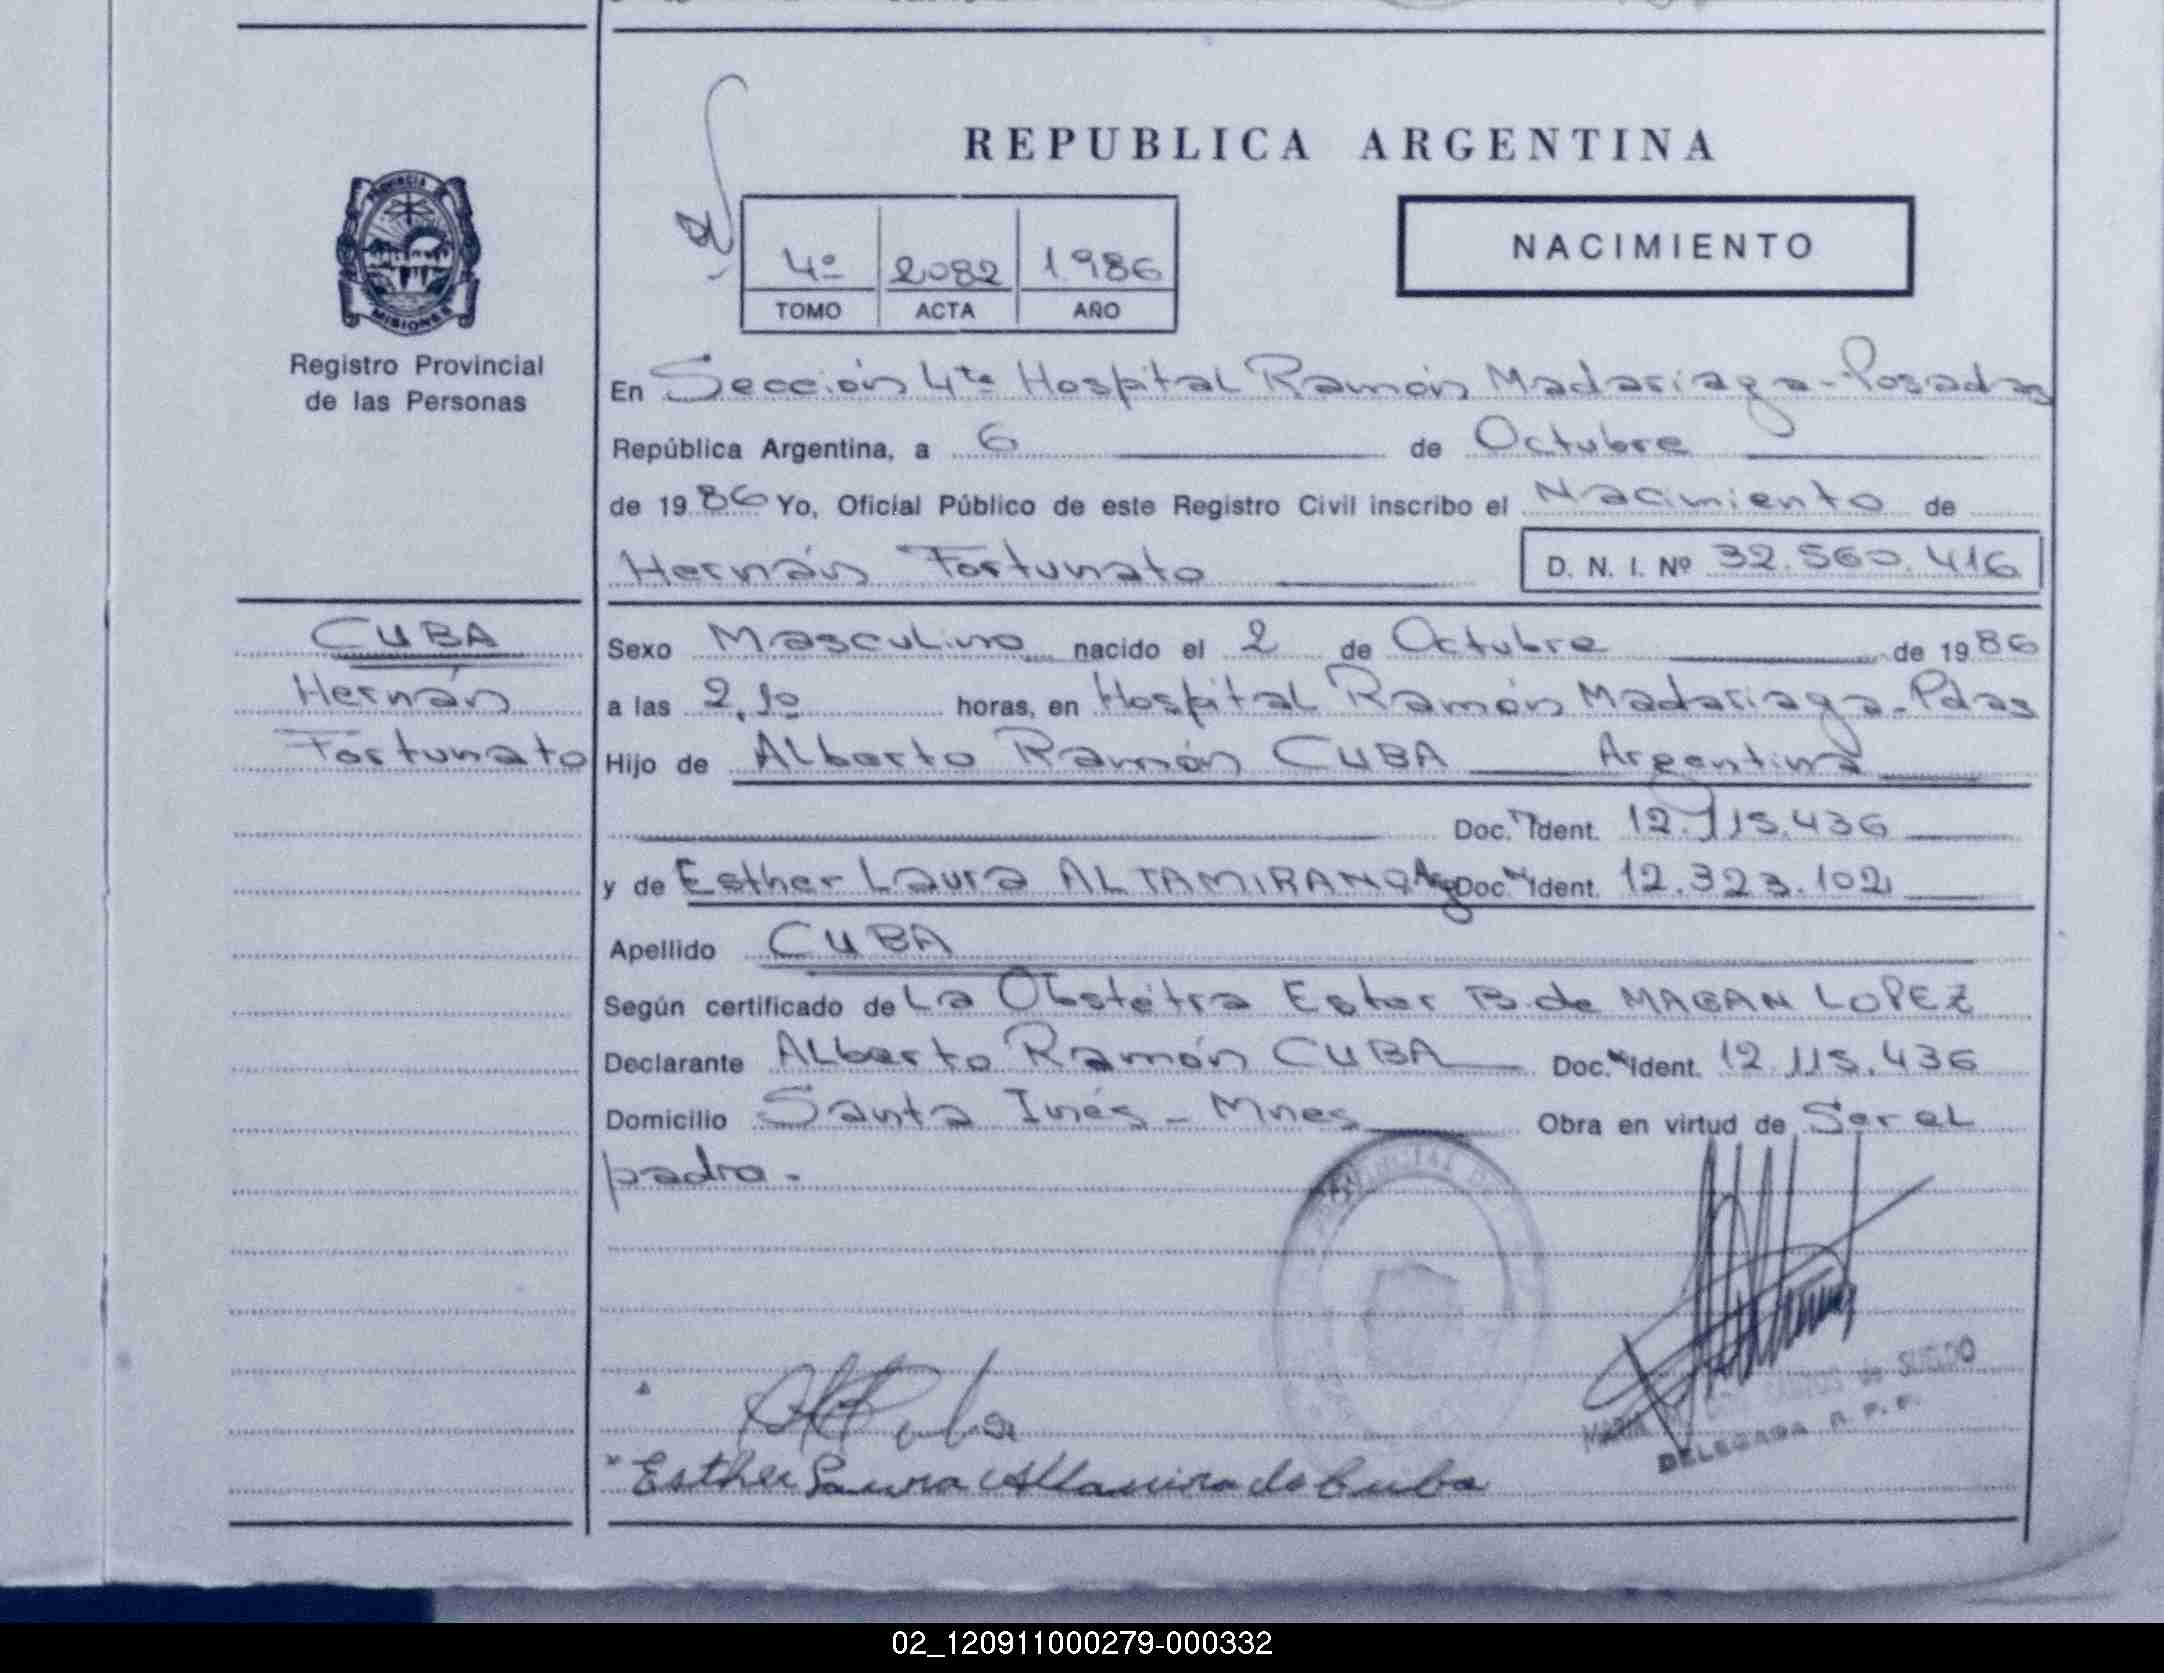 REPUBLICA ARGENTINA
NACIMIENTO
4º 2082 1986
TOMO ACTA AÑO
PROVINCIA DE
MISIONES
Registro Provincial
de las Personas
En Sección 4ta Hospital Ramón Madariaga-Posadas
República Argentina, a 6 de Octubre
de 1986 Yo, Oficial Público de este Registro Civil inscribo el Nacimiento de
Hernán Fortunato D. N. I. Nº 32.560.416
CUBA
Hernán
Fortunato
Sexo Masculino nacido el 2 de Octubre de 1986
a las 2,10 horas, en Hospital Ramón Madariaga-Pdas
Hijo de Alberto Ramón CUBA Argentina
Doc. Ident. 12.115.436
y de Esther Laura ALTAMIRANO Doc. Ident. 12.323.102
Apellido CUBA
Según certificado de La Obstétra Ester B. de MAGAN LOPEZ
Declarante Alberto Ramón CUBA Doc. Ident. 12.115.436
Domicilio Santa Inés - Mnes Obra en virtud de Ser el
padre.
MARIA SANTOS de SUELDO
DELEGADA R. P. P.
Esther Laura Altamirano de Cuba
02_120911000279-000332